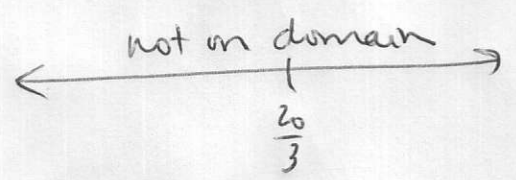 not in domain
20
3